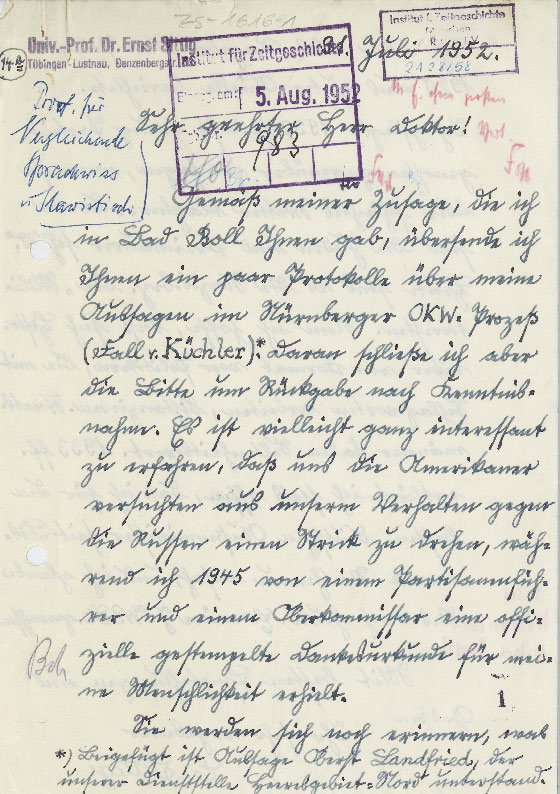 ZS-1616-1
Univ.-Prof. Dr. Ernst Sittig
Tübingen-Lustnau, Denzenberg
Institut f. Zeitgeschichte
München
Institut für Zeitgeschichte
31. Juli 1952.
5. Aug. 1952
983
Prof. für
Vergleichende
Sprachwiss
u. Slawistisch
Sehr geehrter Herr Doktor!
Gemäß meiner Zusage, die ich
in Bad Boll Ihnen gab, übersende ich
Ihnen ein paar Protokolle über meine
Aussagen im Nürnberger OKW-Prozeß
(Fall v. Küchler).* Daran schließe ich aber
die Bitte um Rückgabe nach Kenntnis-
nahme. Es ist vielleicht ganz interessant
zu erfahren, daß uns die Amerikaner
versuchten aus unserm Verhalten gegen
die Russen einen Strick zu drehen, wäh-
rend ich 1945 von einem Partisanenfüh-
rer und einem Oberkommissar eine offi-
zielle gestempelte Dankesurkunde für mei-
ne Menschlichkeit erhielt.
1
Sie werden sich noch erinnern, was
*) Beigefügt ist Aussage Oberst Landfried, der
unserer Dienststelle Heeresgebiet-Nord unterstand.